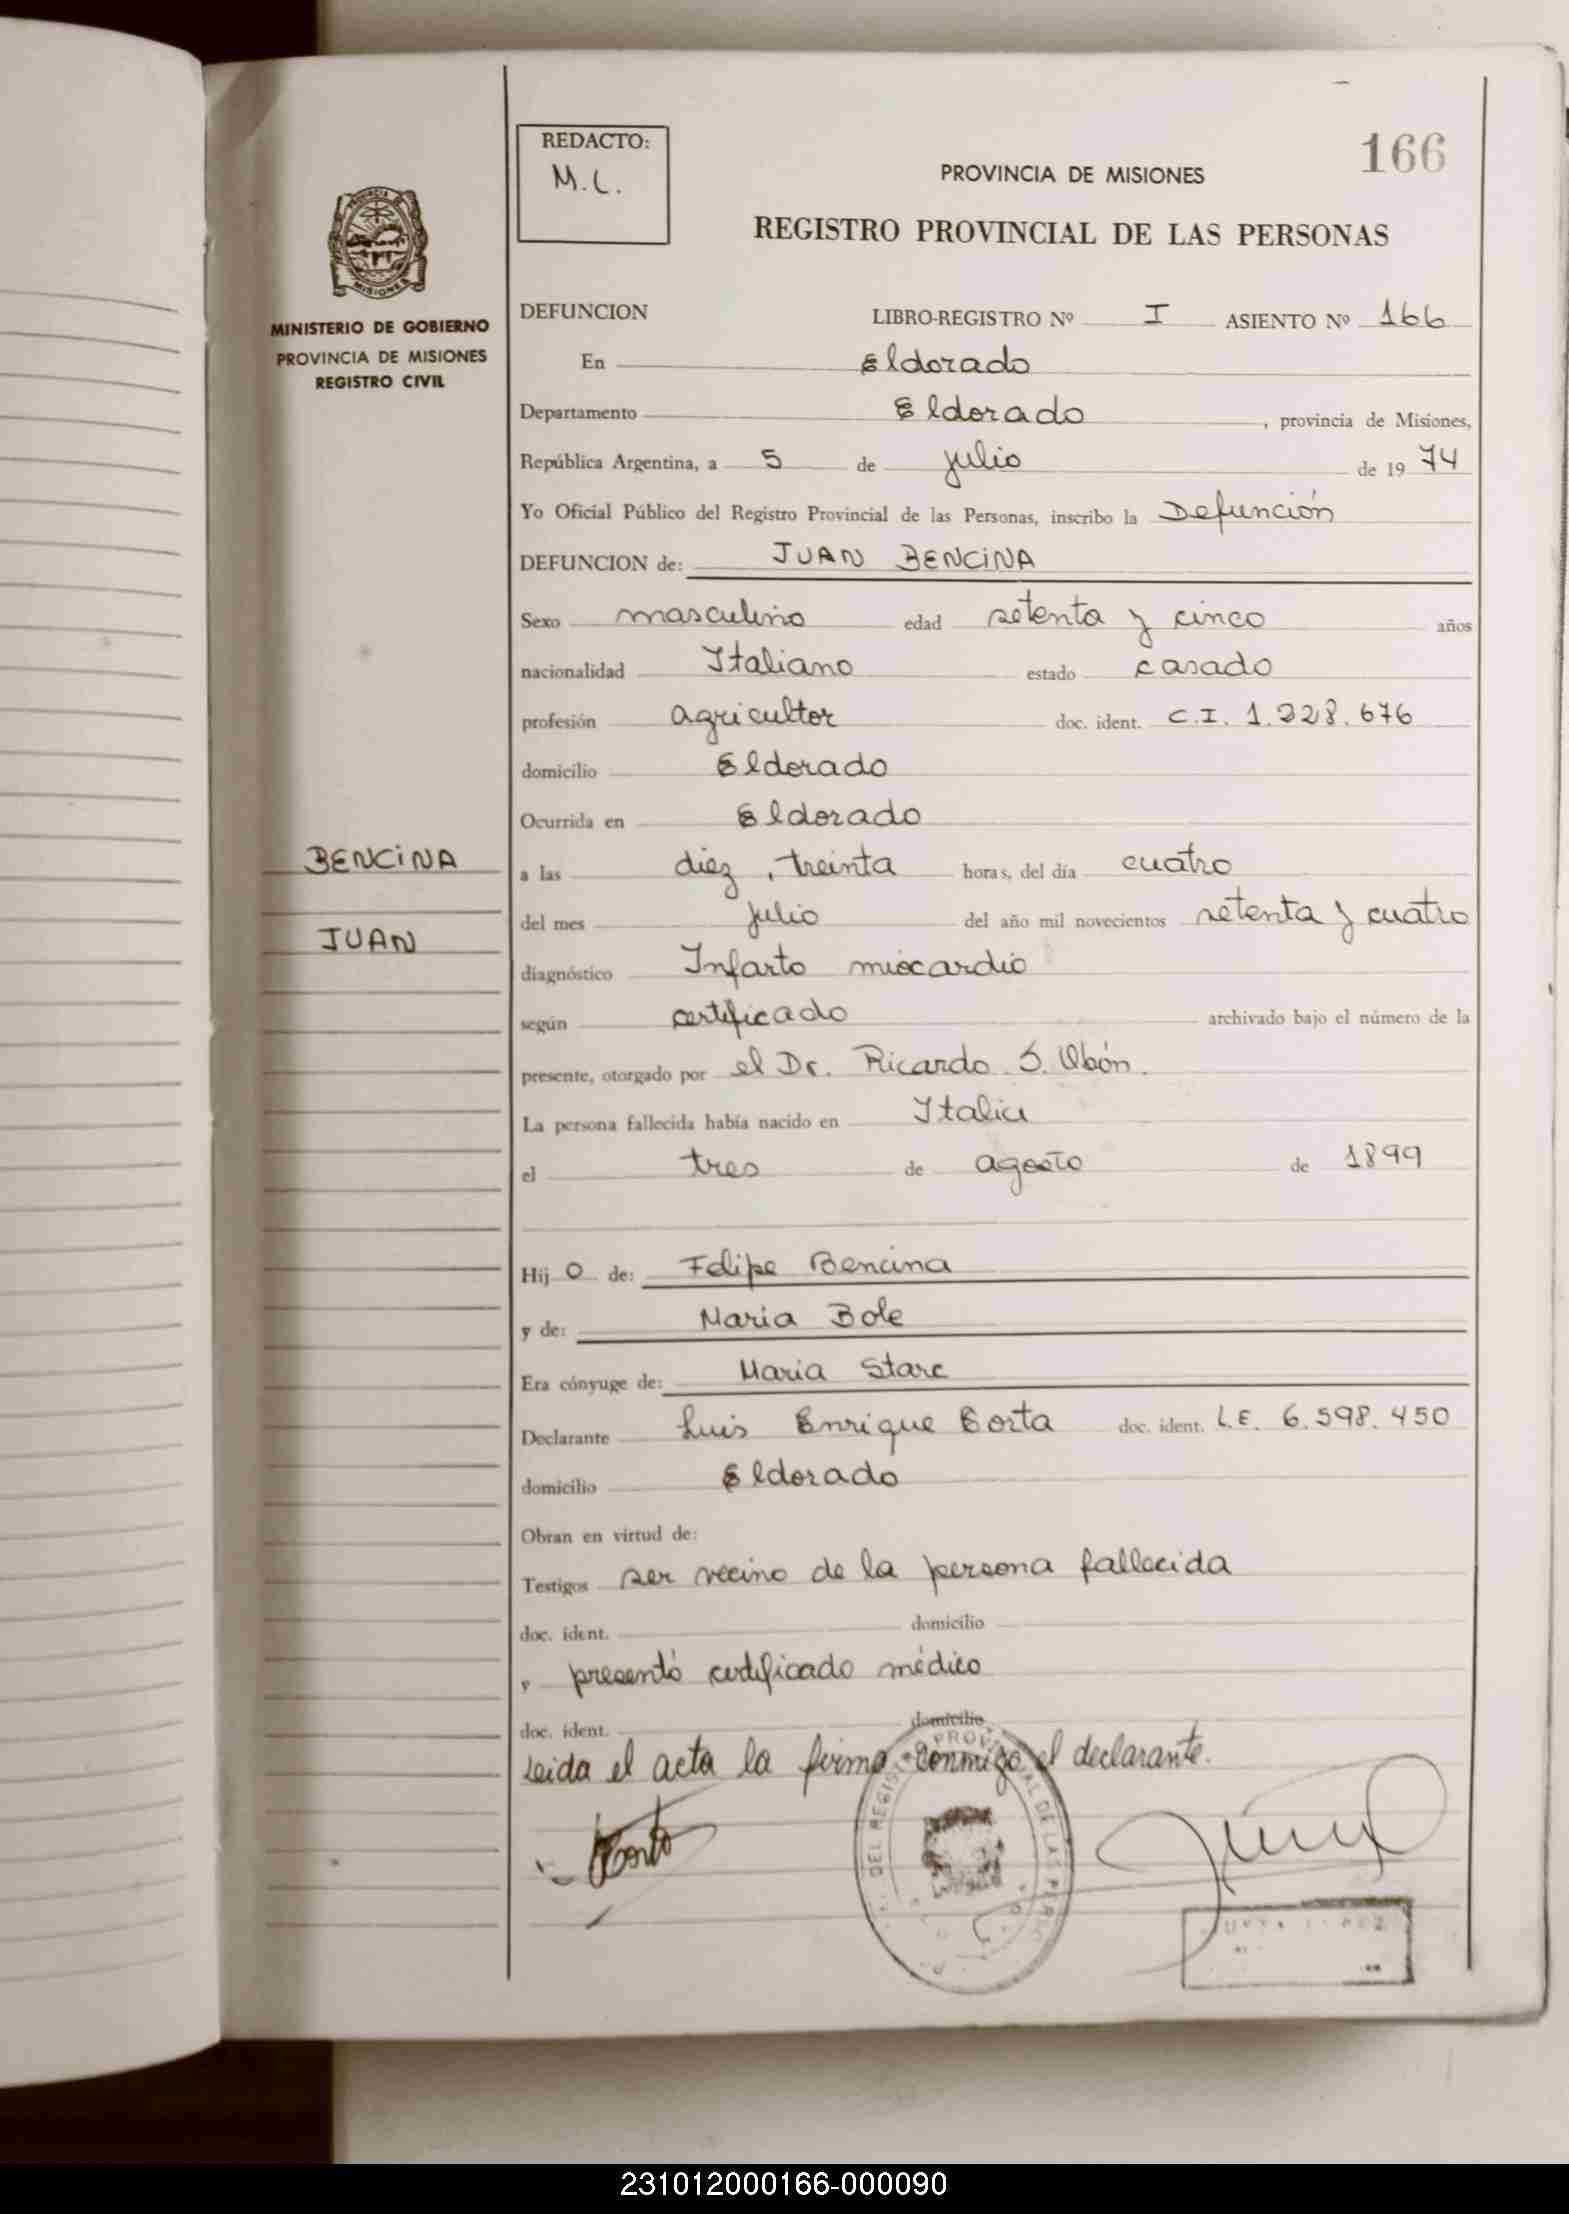 REDACTO:
M.C.
166
PROVINCIA DE MISIONES
REGISTRO PROVINCIAL DE LAS PERSONAS
MISIONES
MINISTERIO DE GOBIERNO
PROVINCIA DE MISIONES
REGISTRO CIVIL
DEFUNCION LIBRO-REGISTRO Nº I ASIENTO Nº 166
En Eldorado
Departamento Eldorado, provincia de Misiones,
República Argentina, a 5 de julio de 19 74
Yo Oficial Público del Registro Provincial de las Personas, inscribo la Defunción
DEFUNCION de: JUAN BENCINA
Sexo masculino edad setenta y cinco años
nacionalidad Italiano estado casado
profesión agricultor doc. ident. C.I. 1.228.676
domicilio Eldorado
Ocurrida en Eldorado
BENCINA
a las diez, treinta horas, del día cuatro
del mes julio del año mil novecientos setenta y cuatro
JUAN
diagnóstico Infarto miocardio
según certificado archivado bajo el número de la
presente, otorgado por el Dr. Ricardo S. Obón.
La persona fallecida había nacido en Italia
el tres de agosto de 1899
Hij o de: Felipe Bencina
y de: Maria Bole
Era cónyuge de: Maria Starc
Declarante Luis Enrique Corta doc. ident. L.E. 6.598.450
domicilio Eldorado
Obran en virtud de:
Testigos ser vecino de la persona fallecida
doc. ident. domicilio
y presentó certificado médico
doc. ident. domicilio
Leida el acta la firma conmigo el declarante.
DEL REGISTRO PROVINCIAL DE LAS PERSO
231012000166-000090